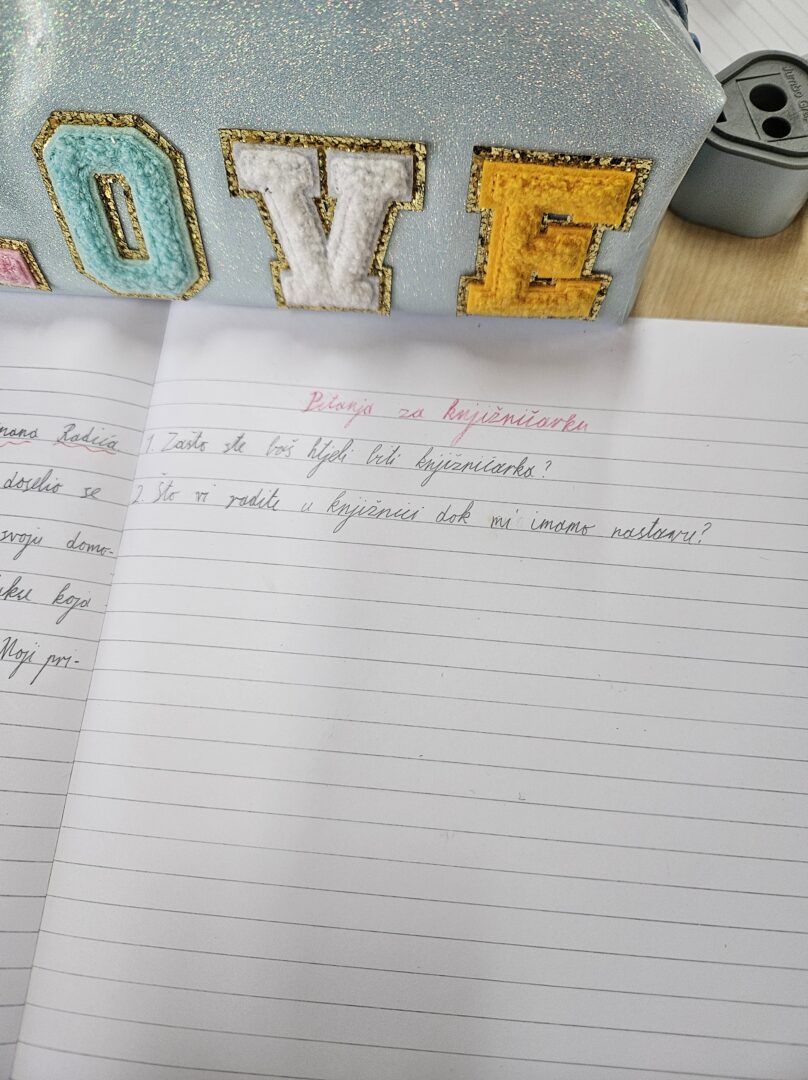 OVE
Pitanja za knjižničarku
1. Zašto ste baš htjeli biti knjižničarka?
2. Što vi radite u knjižnici dok mi imamo nastavu?
Radića
doselio se
svoju domo-
koja
Moji pri-